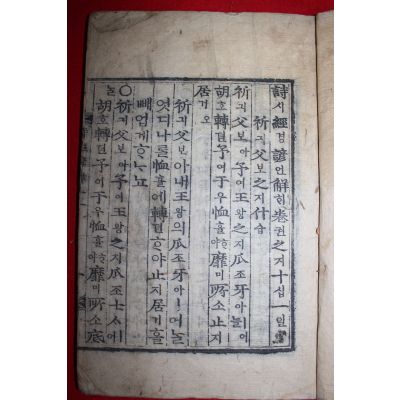 詩시經경諺언解ᄒᆡ卷권之지十십一일
祈긔父보之지什습
祈긔父보아予여ㅣ王왕之지爪조牙아ㅣ어늘
胡호轉뎐予여于우恤휼ᄒᆞ야靡미所소止지
居거오
祈긔父보아내王왕의爪조牙아ㅣ어늘
엇디나ᄅᆞᆯ恤휼에轉뎐ᄒᆞ야止지居거ᄒᆞᆯ
빼업게ᄒᆞᄂᆞ뇨
○祈긔父보아予여ㅣ王왕之지爪조士ᄉᆞㅣ어
늘胡호轉뎐予여于우恤휼ᄒᆞ야靡미所소底